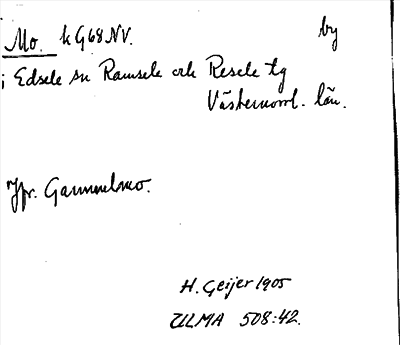 Mo. k G68NV. by
i Edsele sn Ramsele och Resele tg
Västernorrl. län.
Jfr. Gammelmo.
H. Geijer 1905
ULMA 508:42.